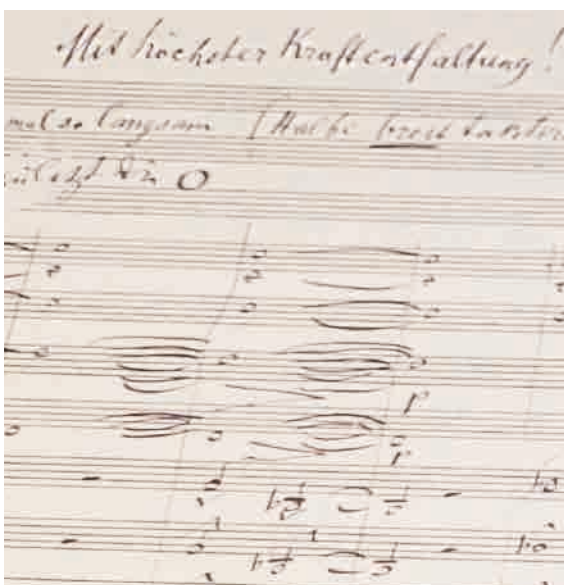 Mit höchster Kraftentfaltung!
mal so langsam (Halbe breit taktiren
O
p
p